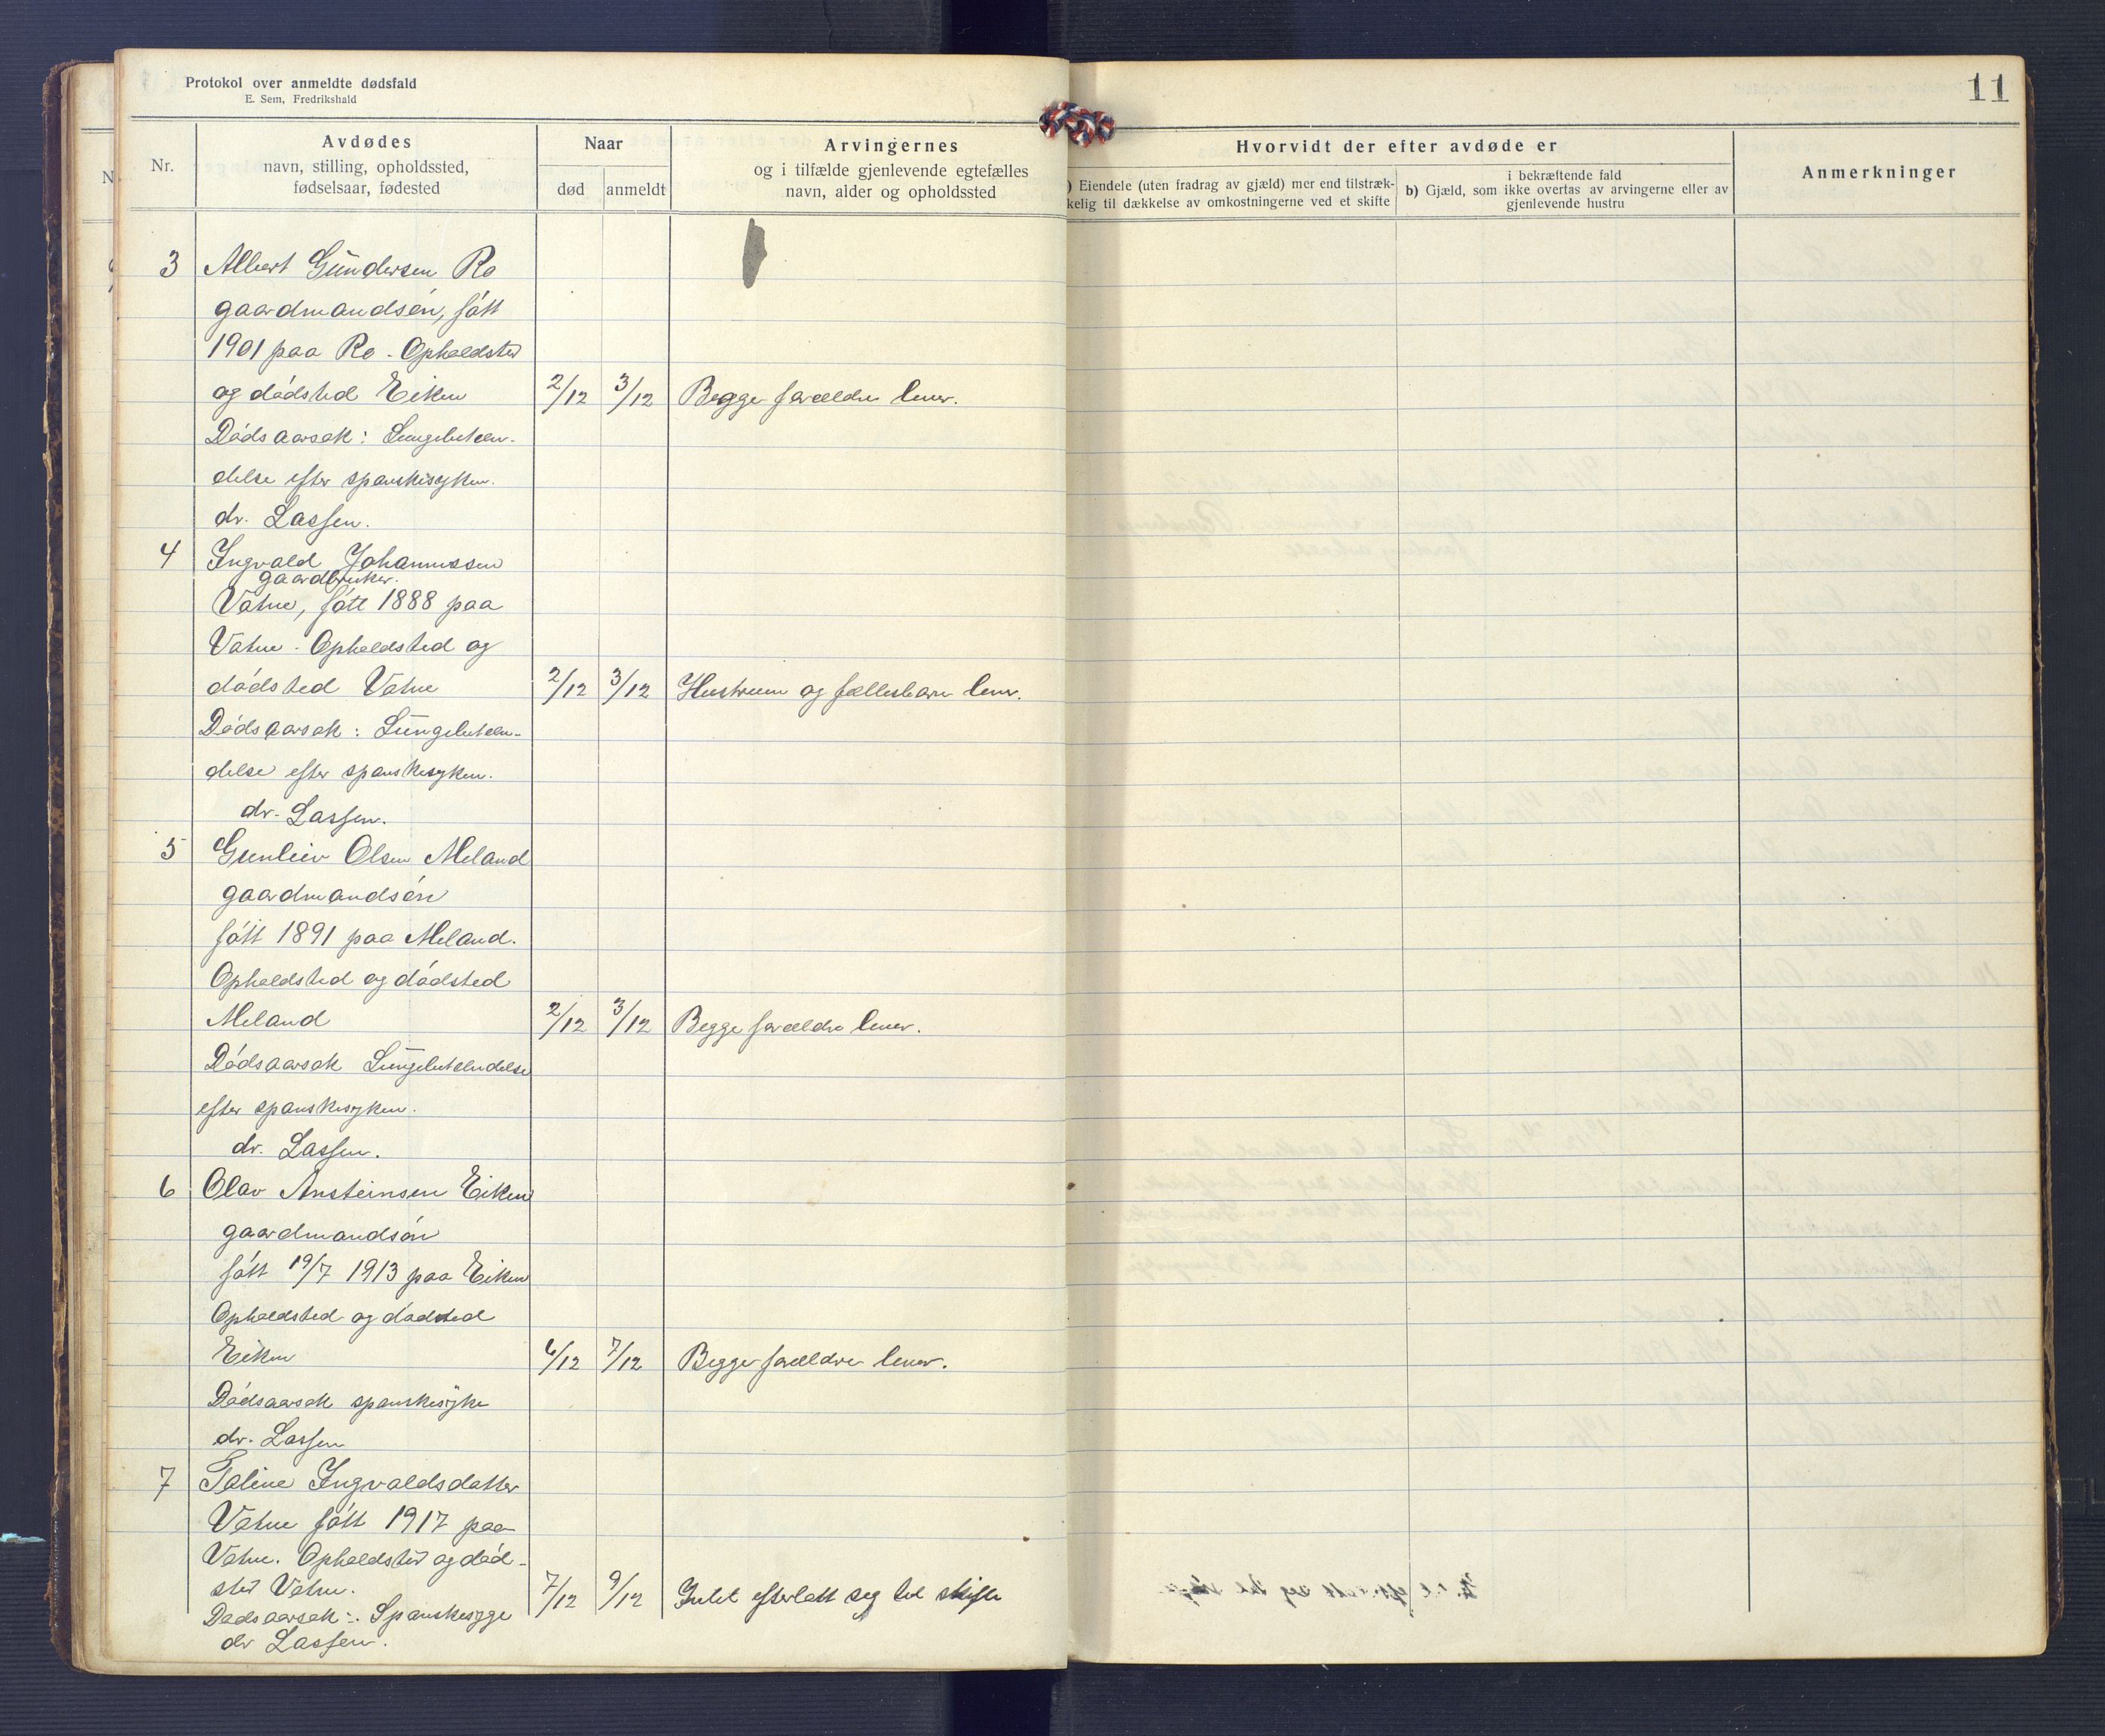 Protokol over anmeldte dødsfald
E. Sem, Fredrikshald
11
Nr.
Avdødes
navn, stilling, opholdssted,
fødselsaar, fødested
Naar
død
anmeldt
Arvingernes
og i tilfælde gjenlevende egtefælles
navn, alder og opholdssted
Hvorvidt der efter avdøde er
) Eiendele (uten fradrag av gjæld) mer end tilstræk-
kelig til dækkelse av omkostningerne ved et skifte
i bekræftende fald
b) Gjæld, som ikke overtas av arvingerne eller av
gjenlevende hustru
Anmerkninger
3 Albert Gundersen Ro
gaardmandsøn, født
1901 paa Ro - Opholdsted
og dødsted Eiken 2/12 3/12 Begge forældre lever.
Dødsaarsak: Lungebeten-
delse efter spanskesyken.
dr. Lassen.
4 Ingvald Johannessen
gaardbruker.
Vatne, født 1888 paa
Vatne - Opholdsted og
dødsted Vatne 2/12 3/12 Hustruen og fællesbarn lever.
Dødsaarsak: Lungebeten-
delse efter spanskesyken.
dr. Lassen.
5 Gunleiv Olsen Meland
gaardmandsøn
født 1891 paa Meland.
Opholdsted og dødsted
Meland 2/12 3/12 Begge forældre lever.
Dødsaarsak Lungebetendelse
efter spanskesyken.
dr. Lassen.
6 Olav Ansteinsen Eiken
gaardmandsøn
født 19/7 1913 paa Eiken
Opholdsted og dødsted
Eiken 6/12 7/12 Begge forældre lever.
Dødsaarsak spanskesyke
dr. Lassen
7 Taline Ingvaldsdatter
Vatne født 1917 paa
Vatne. Opholdsted og død-
sted Vatne. 7/12 9/12 Intet efterlatt seg til skifte
Dødsaarsak:. Spanskesyge
dr Lassen.